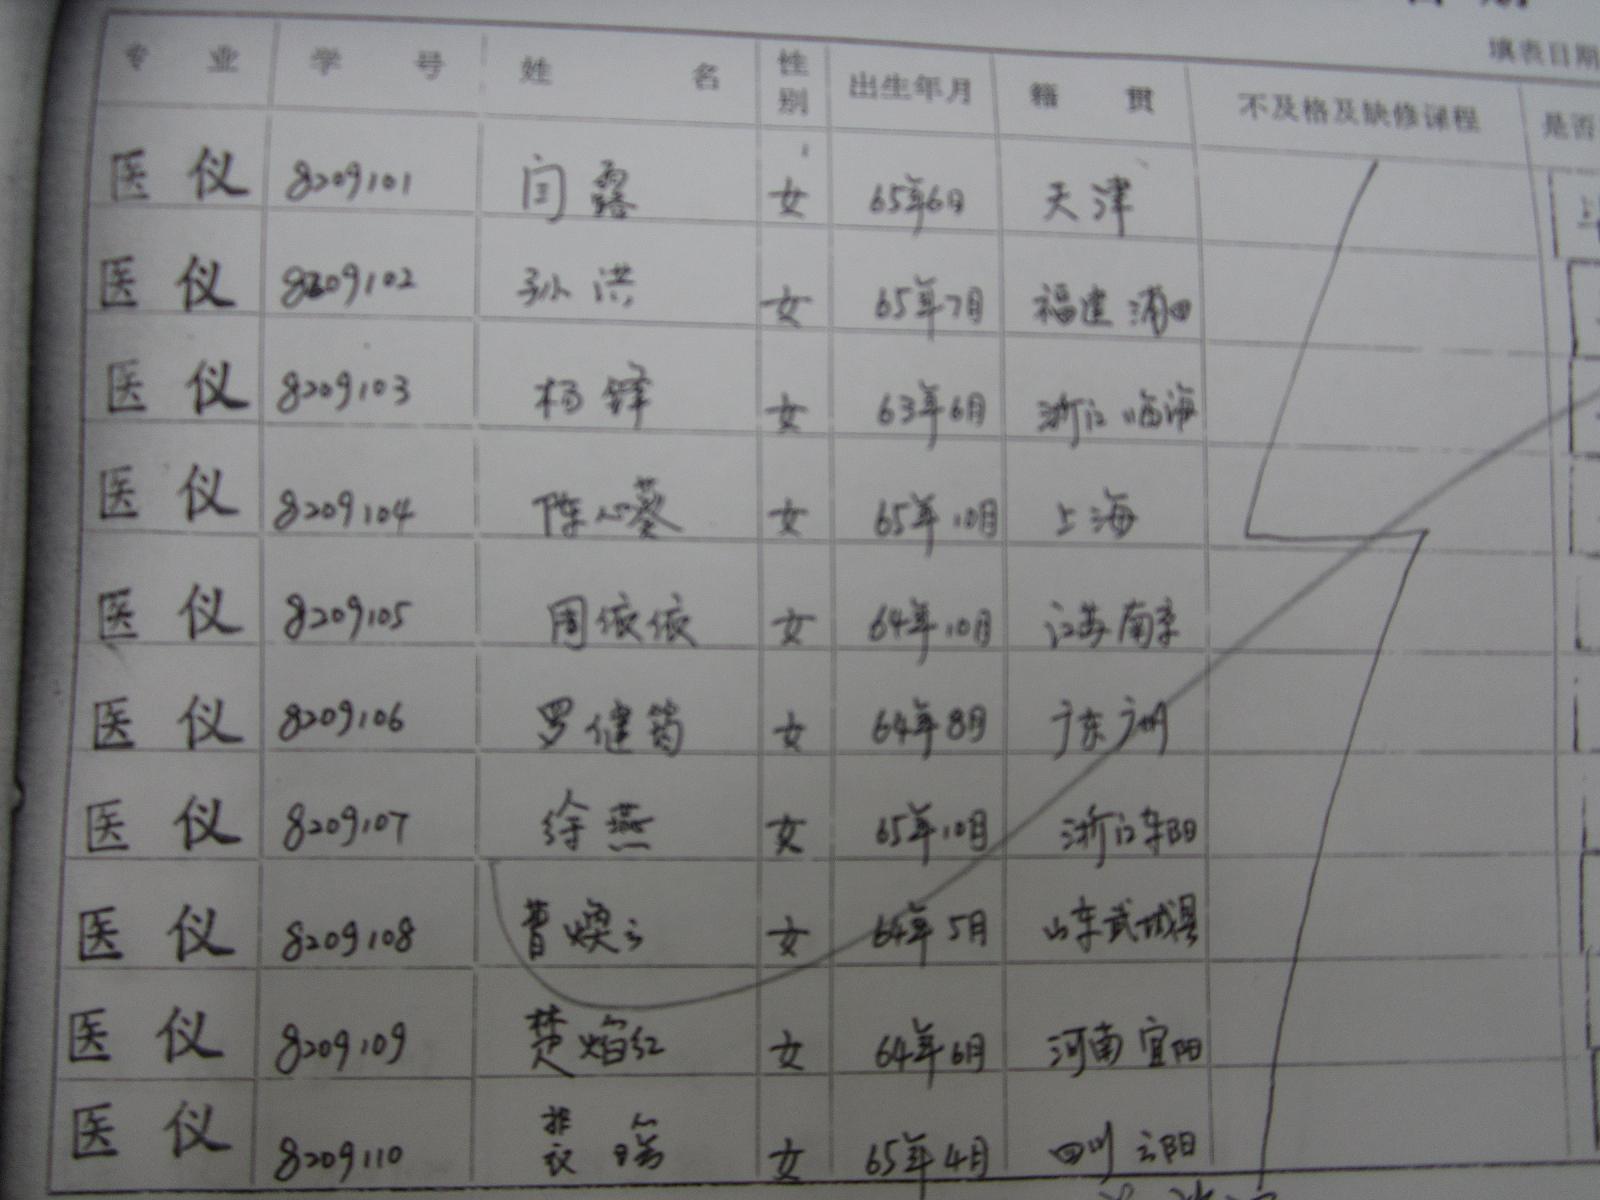 填表日期
专业 学号 姓名 性别 出生年月 籍贯 不及格及缺修课程 是否
医仪 8209101 闫露 女 65年6月 天津
医仪 8209102 孙洪 女 65年7月 福建 浦田
医仪 8209103 杨铎 女 63年6月 浙江 临海
医仪 8209104 陈心葵 女 65年10月 上海
医仪 8209105 周依依 女 64年10月 江苏南京
医仪 8209106 罗健筠 女 64年8月 广东广州
医仪 8209107 徐燕 女 65年10月 浙江东阳
医仪 8209108 曹焕云 女 64年5月 山东武城县
医仪 8209109 楚焰红 女 64年6月 河南宜阳
医仪 8209110 裴 女 65年4月 四川云阳